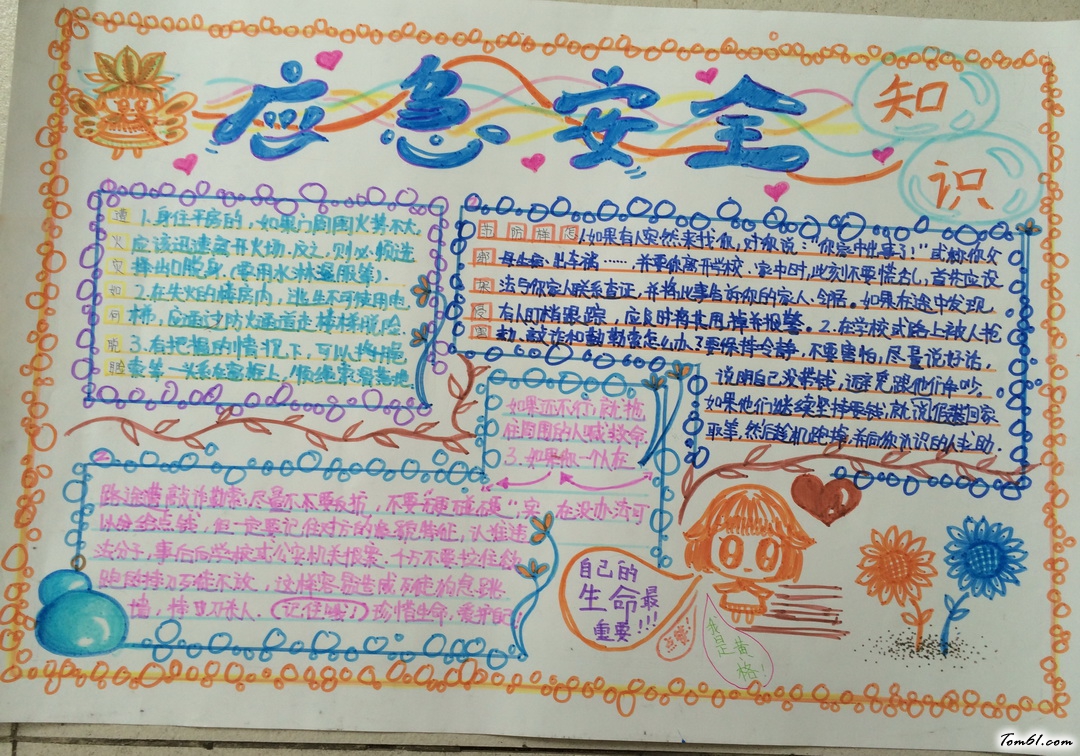 应急安全
知
识
遭火灾如何脱险
1.身住平房的，如果门周围火势不大，
应该迅速离开火场.反之，则必须选
择出口脱身，(要用水淋湿服等).
2.在失火的楼房内，逃生不可使用电
梯，应通过防火通道走楼梯脱险.
3.有把握的情况下，可以将绳
索第一头系在窗框上，顺绳索滑落地.
1.如果有人突然来找你，对你说："你家中出事了!"或称你父
母生命、出车祸……并要你离开学校、家中时，此刻不要慌乱，首先应设
法与你家人联系查证，并将此事告诉你的家人、邻居。如果在途中发现
有人盯梢跟踪，应及时将其甩掉并报警。2.在学校或路上被人抢
劫、敲诈和勒索怎么办？要保持冷静，不要害怕，尽量说好话，
说明自己没带钱，避免跟他们争吵。
如果他们继续坚持要钱，就说假装回家
取等，然后趁机跑掉，并向你认识的人求助.
如果还不行，就抱
住周围的人喊"救命.
3.如果你一个人在
路途遭敲诈勒索，尽量不要反抗，不要"硬碰硬"实，在没办法可
以分给点钱，但一定要记住对方的体貌特征，认准违
法分子，事后向学校或公安机关报案.千万不要拉住
不能不放，这样容易造成
墙，杀人.(记住哦!)珍惜生命，爱护自己
自己的
生命最
重要!!!
点赞!
我是黄格!
Tom61.com